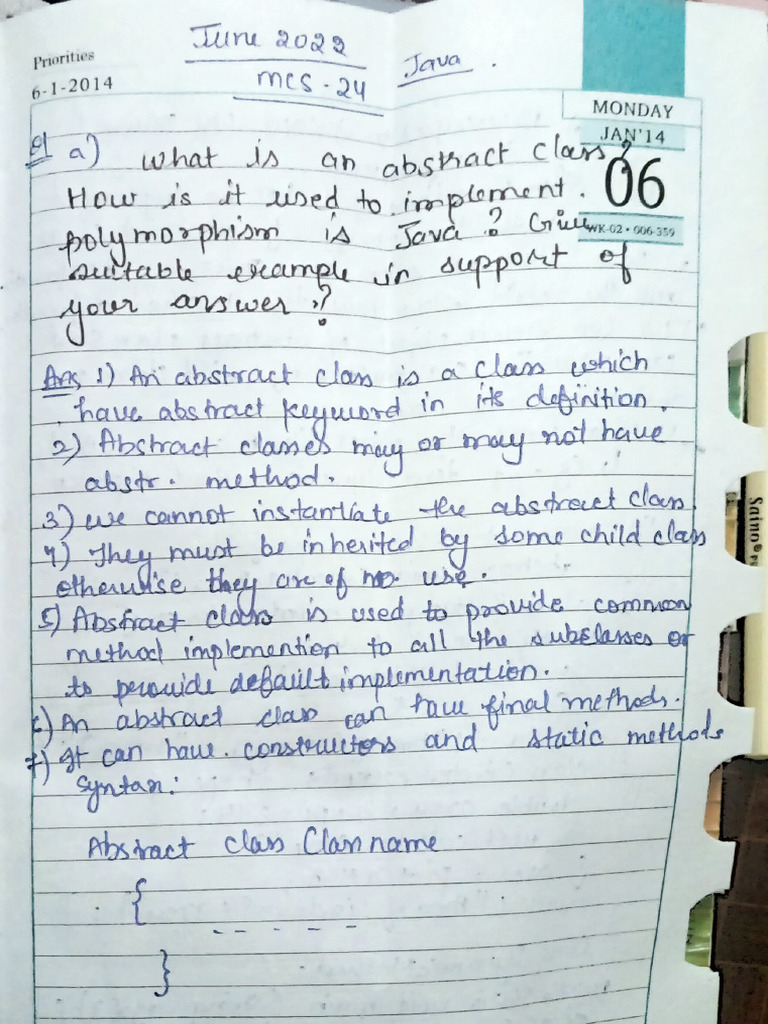 June 2022
Priorities
Java .
6-1-2014
mcs - 24
MONDAY
JAN'14
06
WK-02 • 006-359
Q1 a) what is an abstract class?
How is it used to implement.
polymorphism is Java ? Give
suitable example in support of
your answer ?
Ans 1) An abstract class is a class which
have abstract keyword in its definition.
2) Abstract classes may or may not have
abstr. method.
3) we cannot instantiate the abstract class
4) They must be inherited by some child class
otherwise they are of no. use.
5) Abstract class is used to provide common
method implemention to all the subclasses or
to provide default implementation.
6) An abstract class can have final methods.
7) It can have constructors and static methods
Syntax:
Abstract class Classname
{
- - - - - -
}
Saino